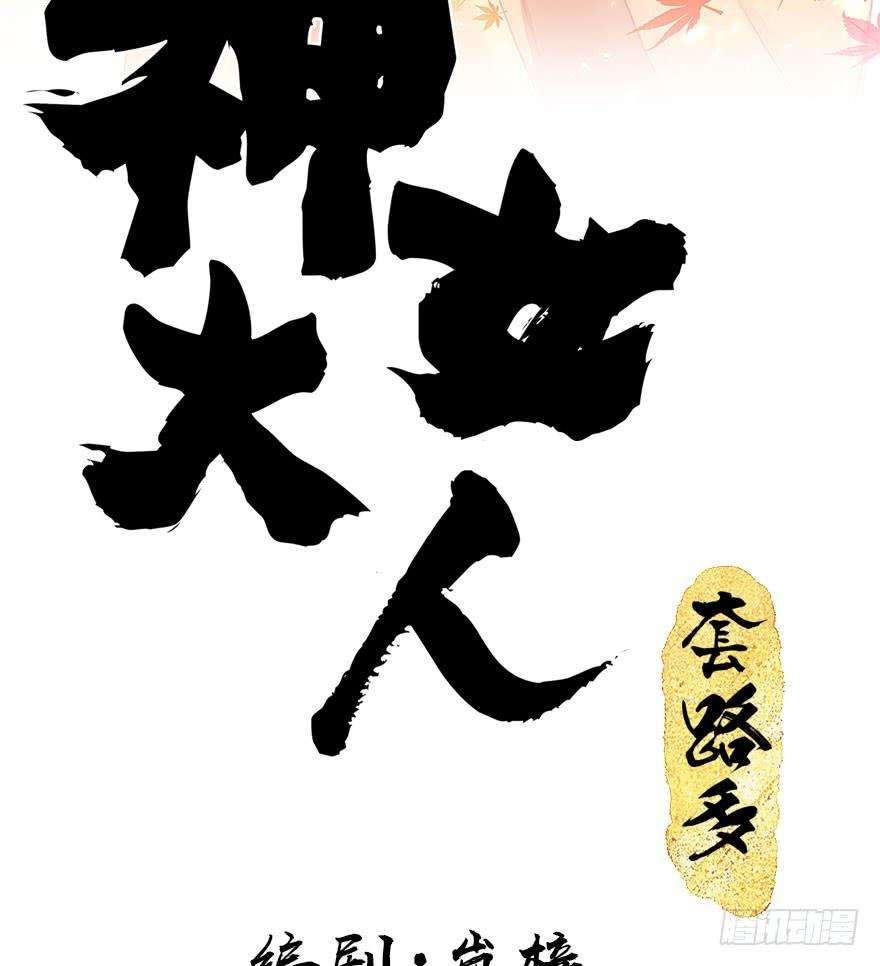 神女大人
套路多
编剧：
腾讯动漫